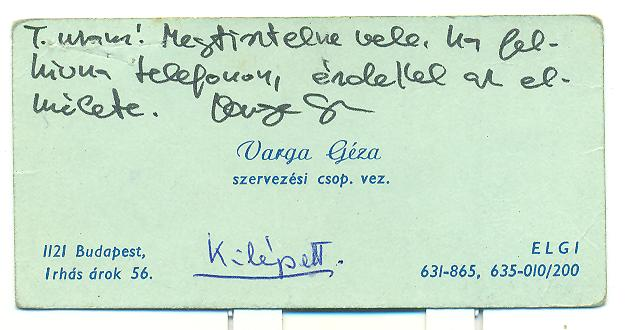 T. uram! Megtisztelne vele, ha fel-
hívna telefonon, érdekel az el-
mélete. Varga G
Varga Géza
szervezési csop. vez.
1121 Budapest,
Irhás árok 56.
Kilépett.
ELGI
631-865, 635-010/200